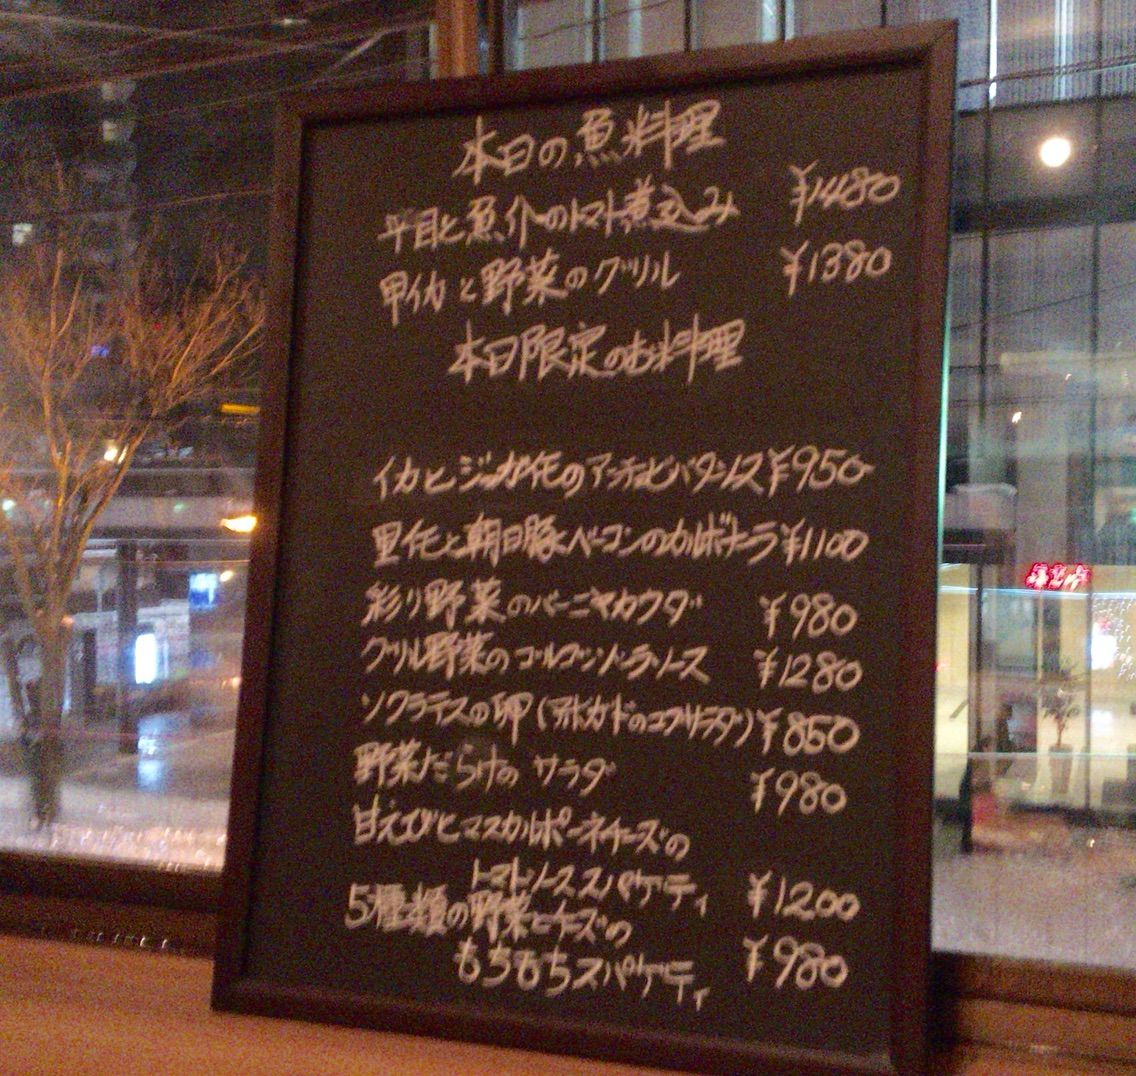 本日の魚料理
平目と魚介のトマト煮込み ¥1480
甲イカと野菜のグリル ¥1380
本日限定のお料理
イカとジャガ芋のアンチョビバターソース ¥950
里芋と朝日豚ベーコンのカルボナーラ ¥1100
彩り野菜のバーニャカウダ ¥980
グリル野菜のゴルゴンゾーラソース ¥1280
ソクラテスの卵(アボカドのコブサラダ) ¥850
野菜だらけのサラダ ¥980
甘えびとマスカルポーネチーズの
トマトソーススパゲティ ¥1200
5種類の野菜とチーズの
もちもちスパゲティ ¥980